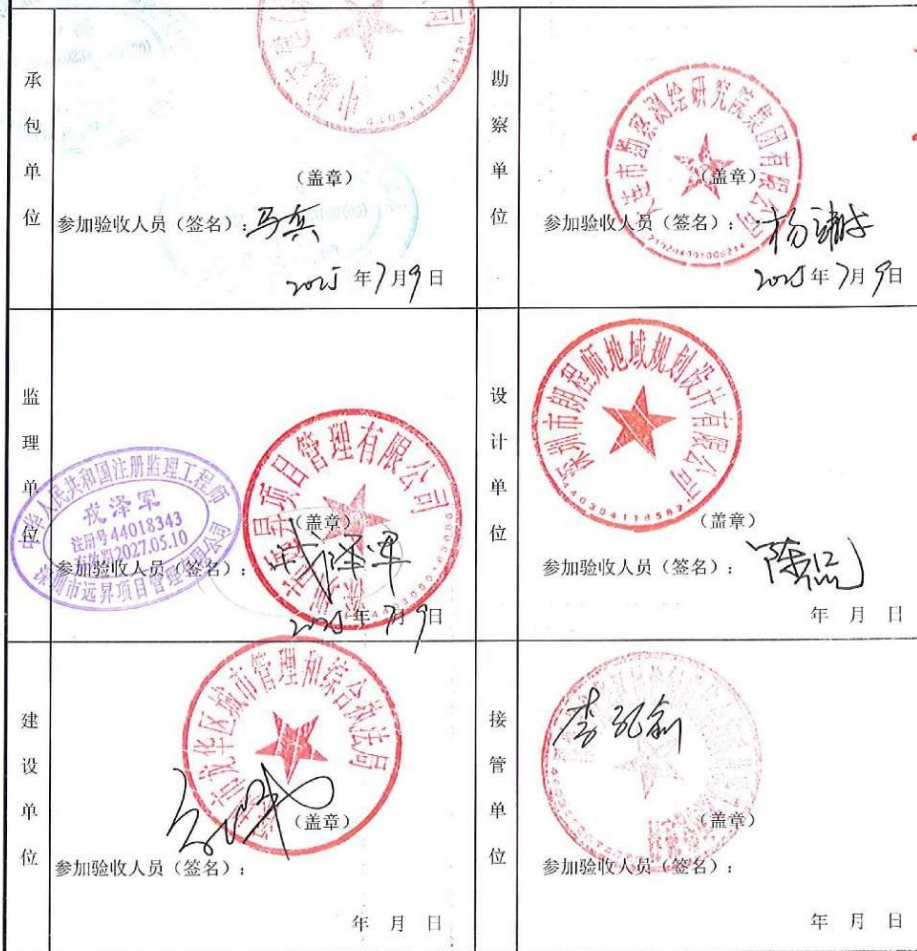 承包单位
（盖章）
参加验收人员（签名）：马兵
2025年7月9日
勘察单位
大连市勘察测绘研究院集团有限公司
（盖章）
参加验收人员（签名）：
2025年7月9日
监理单位
中华人民共和国注册监理工程师
戎泽军
注册号44018343
有效期2027.05.10
深圳市远昇项目管理有限公司
深圳市远昇项目管理有限公司
（盖章）
参加验收人员（签名）：戎泽军
2025年7月9日
设计单位
深圳市朗程师地域规划设计有限公司
（盖章）
参加验收人员（签名）：
年 月 日
建设单位
深圳市龙华区城市管理和综合执法局
（盖章）
参加验收人员（签名）：
年 月 日
接管单位
（盖章）
参加验收人员（签名）：
年 月 日